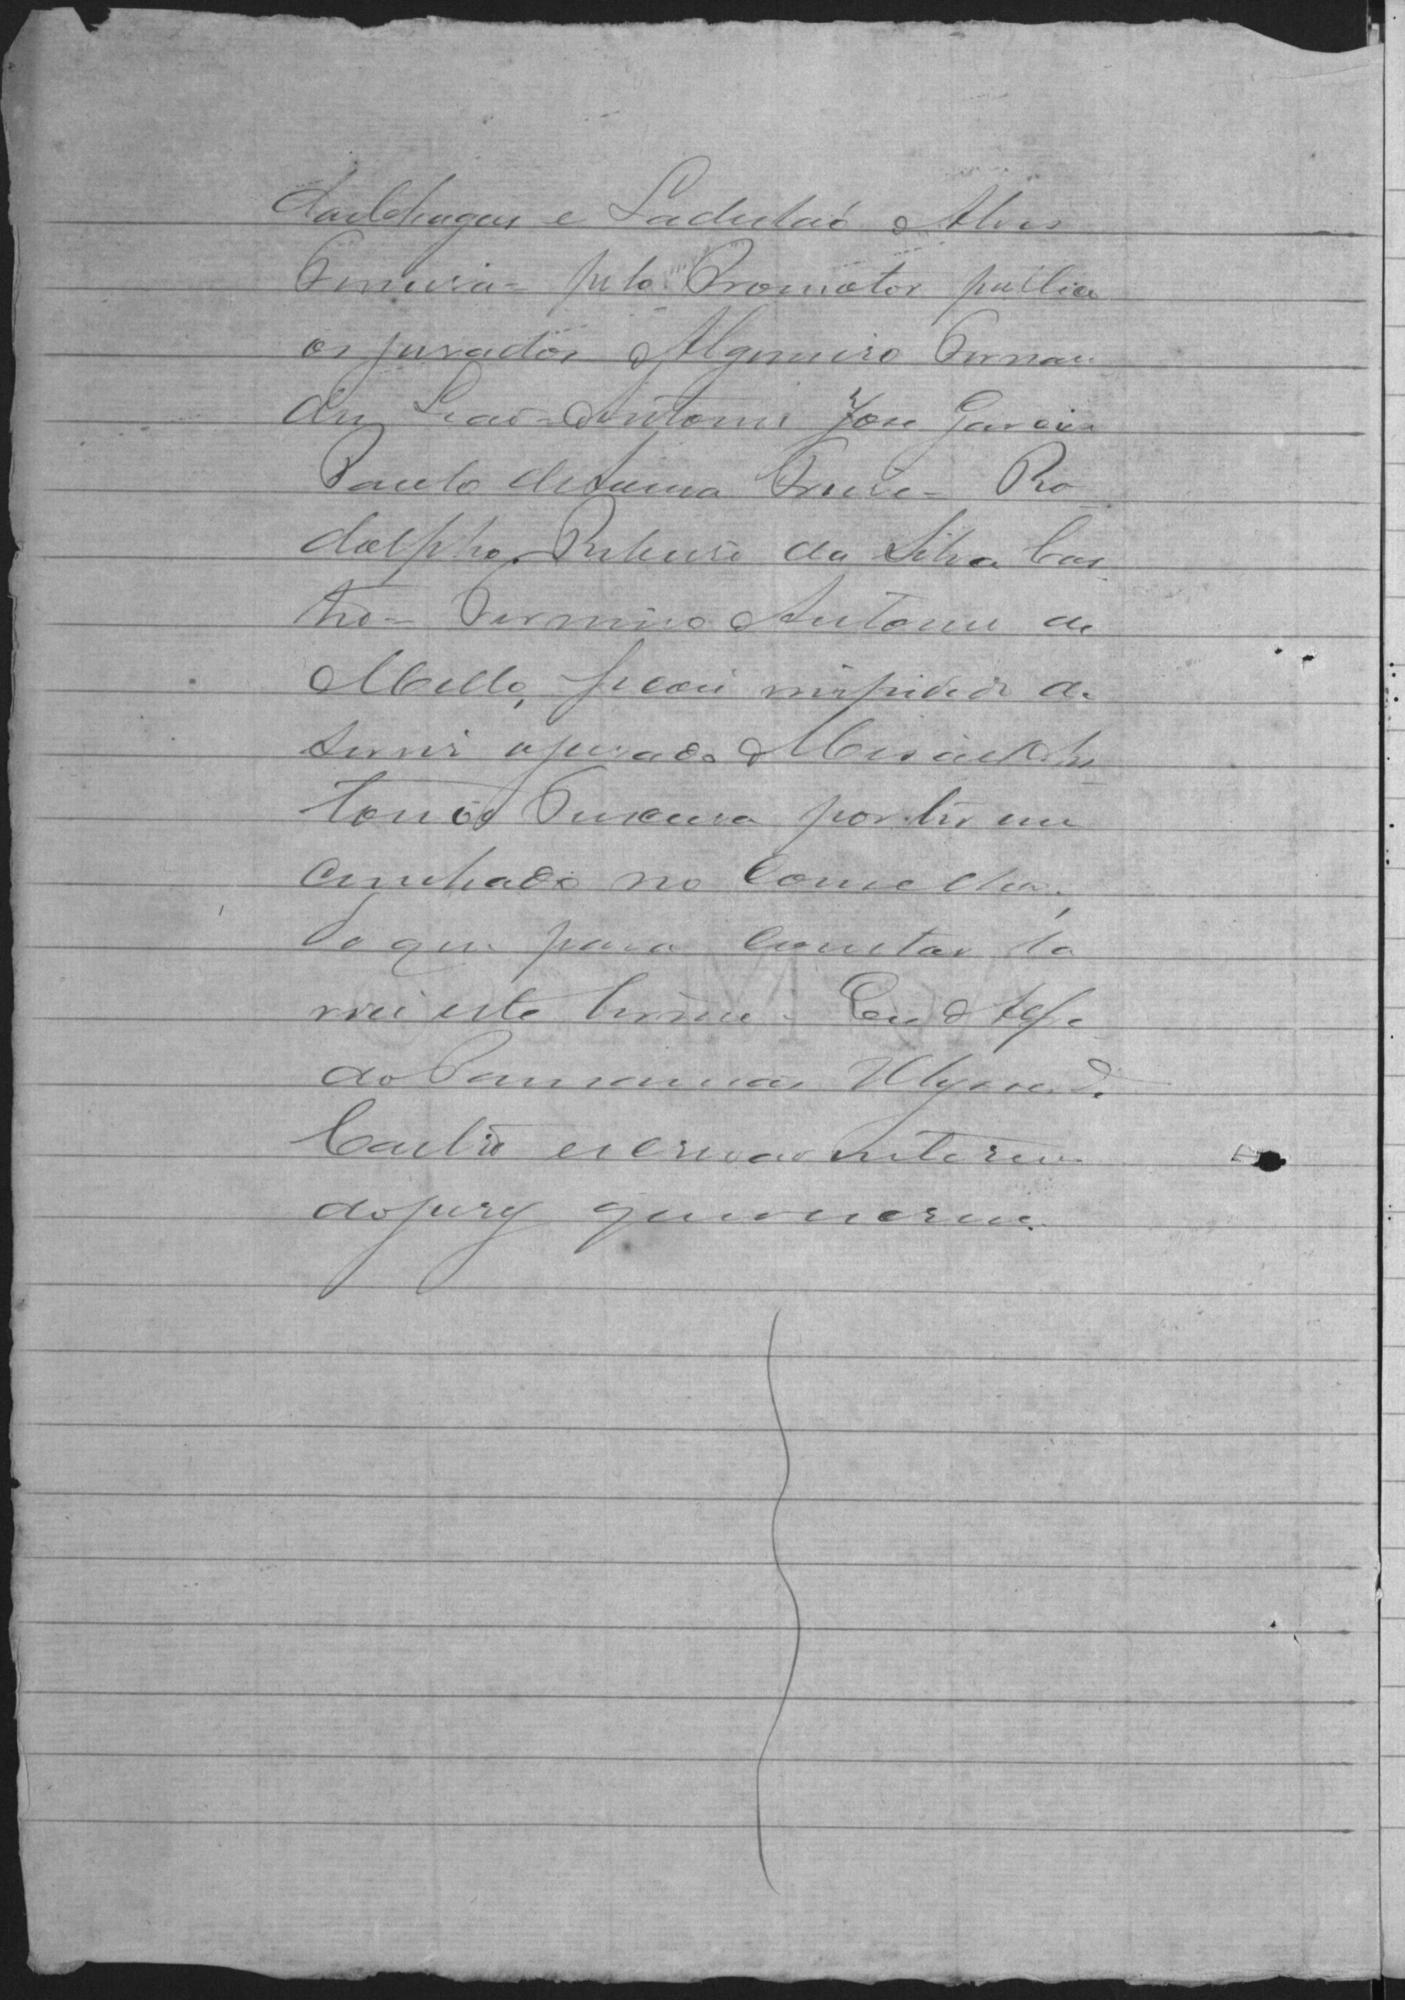 das Chagas e Ladislaó Alves
Ferreira - pelo Promotor publico
os jurados Algemiro Fernan
des Leão - Antonio José Garcia
Paulo de Lima Freire - Ro
dolpho Ribeiro da Silva Cas
tro - Firmino Antonio de
Mello, ficou impedido de
servir o jurado An
tonio Teixeira por ter um
cunhado no Conselho,
do que para constar la
vrei este termo. Eu Alfre
do Ulysses de
Castro escrivão interino
do jury que escrevi.